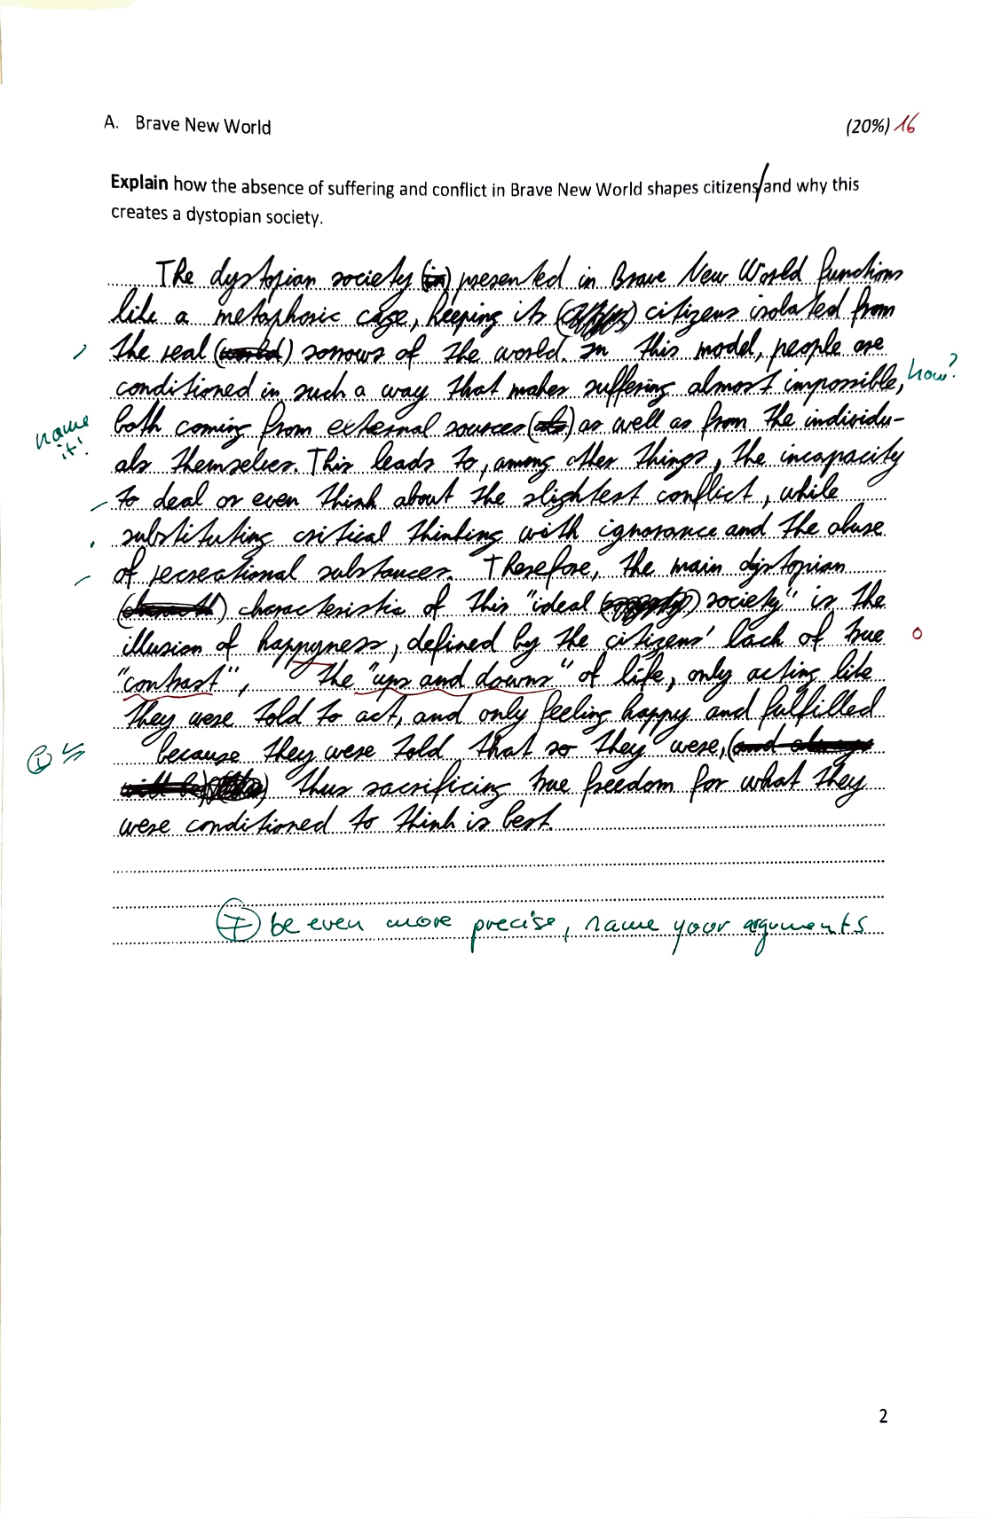 A. Brave New World (20%) 16
Explain how the absence of suffering and conflict in Brave New World shapes citizens/and why this
creates a dystopian society.
The dystopian society (in) presented in Brave New World functions
like a metaphoric cage, keeping its citizens isolated from
the real (world) sorrows of the world. In this model, people are
conditioned in such a way that makes suffering almost impossible, how?
name it!
both coming from external sources (als) as well as from the individu-
als themselves. This leads to, among other things, the incapacity
to deal or even think about the slightest conflict, while
substituting critical thinking with ignorance and the abuse
of recreational substances. Therefore, the main dystopian
characteristic of this "ideal society" is the
illusion of happyness, defined by the citizens' lack of true
"contrast", the "ups and downs" of life, only acting like
they were told to act, and only feeling happy and fulfilled
because they were told that so they were, (and always
will be) thus sacrificing true freedom for what they
were conditioned to think is best.
+ be even more precise, name your arguments
2